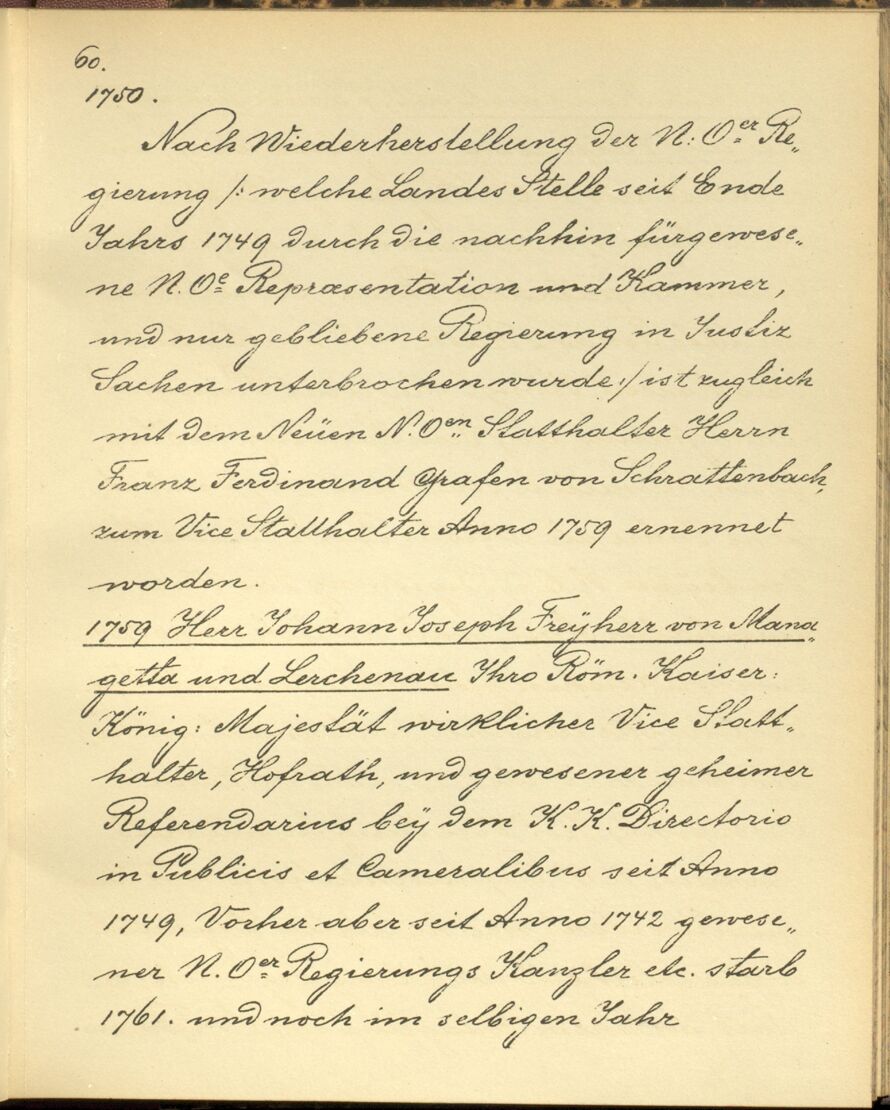 60.
1750.
Nach Wiederherstellung der N: Oer Re„
gierung /: welche Landes Stelle seit Ende
Jahrs 1749 durch die nachhin fürgewese„
ne N. Oe Repræsentation und Kammer,
und nur gebliebene Regierung in Justiz
Sachen unterbrochen wurde :/ ist zugleich
mit dem Neüen N. Oen Statthalter Herrn
Franz Ferdinand Grafen von Schrattenbach,
zum Vice Statthalter Anno 1759 ernennet
worden.
1759 Herr Johann Joseph Freÿherr von Mana„
getta und Lerchenau Ihro Röm. Kaiser:
König: Majestät wirklicher Vice Statt„
halter, Hofrath, und gewesener geheimer
Referendarius beÿ dem K. K. Directorio
in Publicis et Cameralibus seit Anno
1749, Vorher aber seit Anno 1742 gewese„
ner N. Oer Regierungs Kanzler etc. starb
1761. und noch im selbigen Jahr